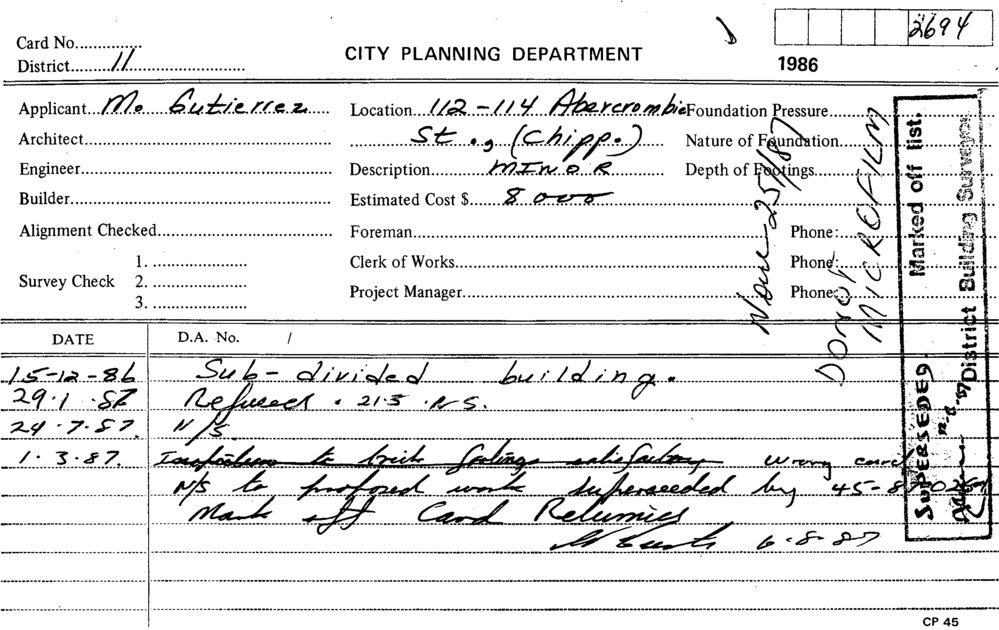 2694
Card No...............
District.........11
CITY PLANNING DEPARTMENT
1986
Applicant...Mo Gutierrez
Location...112-114 Abercrombie
St., (Chipp.)
Foundation Pressure
Architect
Nature of Foundation
Engineer
Description.........MINOR
Depth of Footings
Builder
Estimated Cost $......8 000
Alignment Checked
Foreman
Phone:
Survey Check
1.
2.
3.
Clerk of Works
Phone:
Project Manager
Phone:
25/187
DONOT
MICROFILM
SUPERSEDED.
Marked off list.
District Building Surveyor
DATE
D.A. No. /
15-12-86 Sub-divided building.
29.1.87 Refused . 21.5 N.S.
24.7.87. N/S.
1.3.87. Inspection to brick footings satisfactory Wrong card
N/S to proposed work superseeded by 45-87
Mark off Card
6-8-87
CP 45